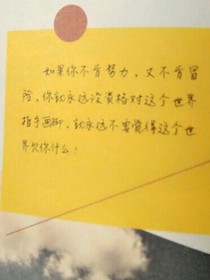 如果你不肯努力，又不肯冒
险，你就永远没资格对这个世界
指手画脚，就永远不要觉得这个世
界欠你什么！